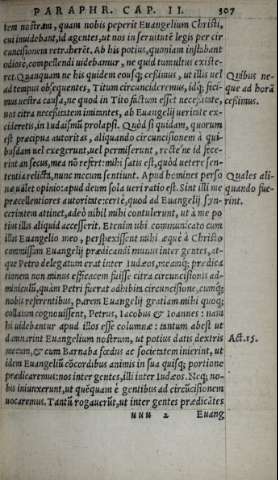 PARAPHR. CAP. II. 307
tem nostram, quam nobis peperit Euangelium Christi,
cui inuidebant, id agentes, ut nos in seruitutē legis per cir
cuncisionem retraherēt. Ab his potius, quoniam instabant
odiose, compellendi uidebamur, ne quid tumultus existe-
ret. Quanquam ne his quidem eousq; cessimus, ut illis uel
ad tempus obsequentes, Titum circuncideremus, idq; feci-
mus uestra causa, ne quod in Tito factum esset necessitate,
uos citra necessitatem imitantes, ab Euangelij ueritate ex-
cideretis, in Iudaismū prolapsi. Quòd si quidam, quorum
est præcipua autoritas, aliquando circuncisionem à qui-
busdam uel exegerunt, uel permiserunt, recte ne id fece-
rint an secus, mea nō refert: mihi satis est, quòd uetere sen-
tentia relicta, nunc mecum sentiunt. Apud homines perso
næ ualet opinio: apud deum sola ueri ratio est. Sint illi me
præcellentiores autoritate: certè, quod ad Euangelij syn-
ceritatem attinet, adeò nihil mihi contulerunt, ut à me po
tius illis aliquid accesserit. Etenim ubi communicato cum
illis Euangelio meo, perspexissent mihi æquè à Christo
commissam Euangelij prædicandi munus inter gentes, at-
que Petro delegatum erat inter Iudæos, neamq; prædica
tionem non minus efficacem fuisse citra circuncisionis ad-
miniculū, quàm Petri fuerat adhibita circuncisione, cumq;
nobis referentibus, parem Euangelij gratiam mihi quoq;
collatam cognouissent, Petrus, Iacobus & Ioannes: nam
hi uidebantur apud illos esse columnæ: tantum abest ut
damnarint Euangelium nostrum, ut potius datis dextris
mecum, & cum Barnaba fœdus ac societatem inierint, ut
idem Euangeliū cōcordibus animis in sua quisq; portione
prædicaremus: nos inter gentes, illi inter Iudæos. Neq; no-
bis iniunxerunt, ut quēquam è gentibus ad circūcisionem
uocaremus. Tantū rogauerūt, ut inter gentes prædicātes
uuu 2 Euang
Quibus ne-
que ad horā
cessimus.
Quales ali-
quando fue-
rint.
Act. 15.